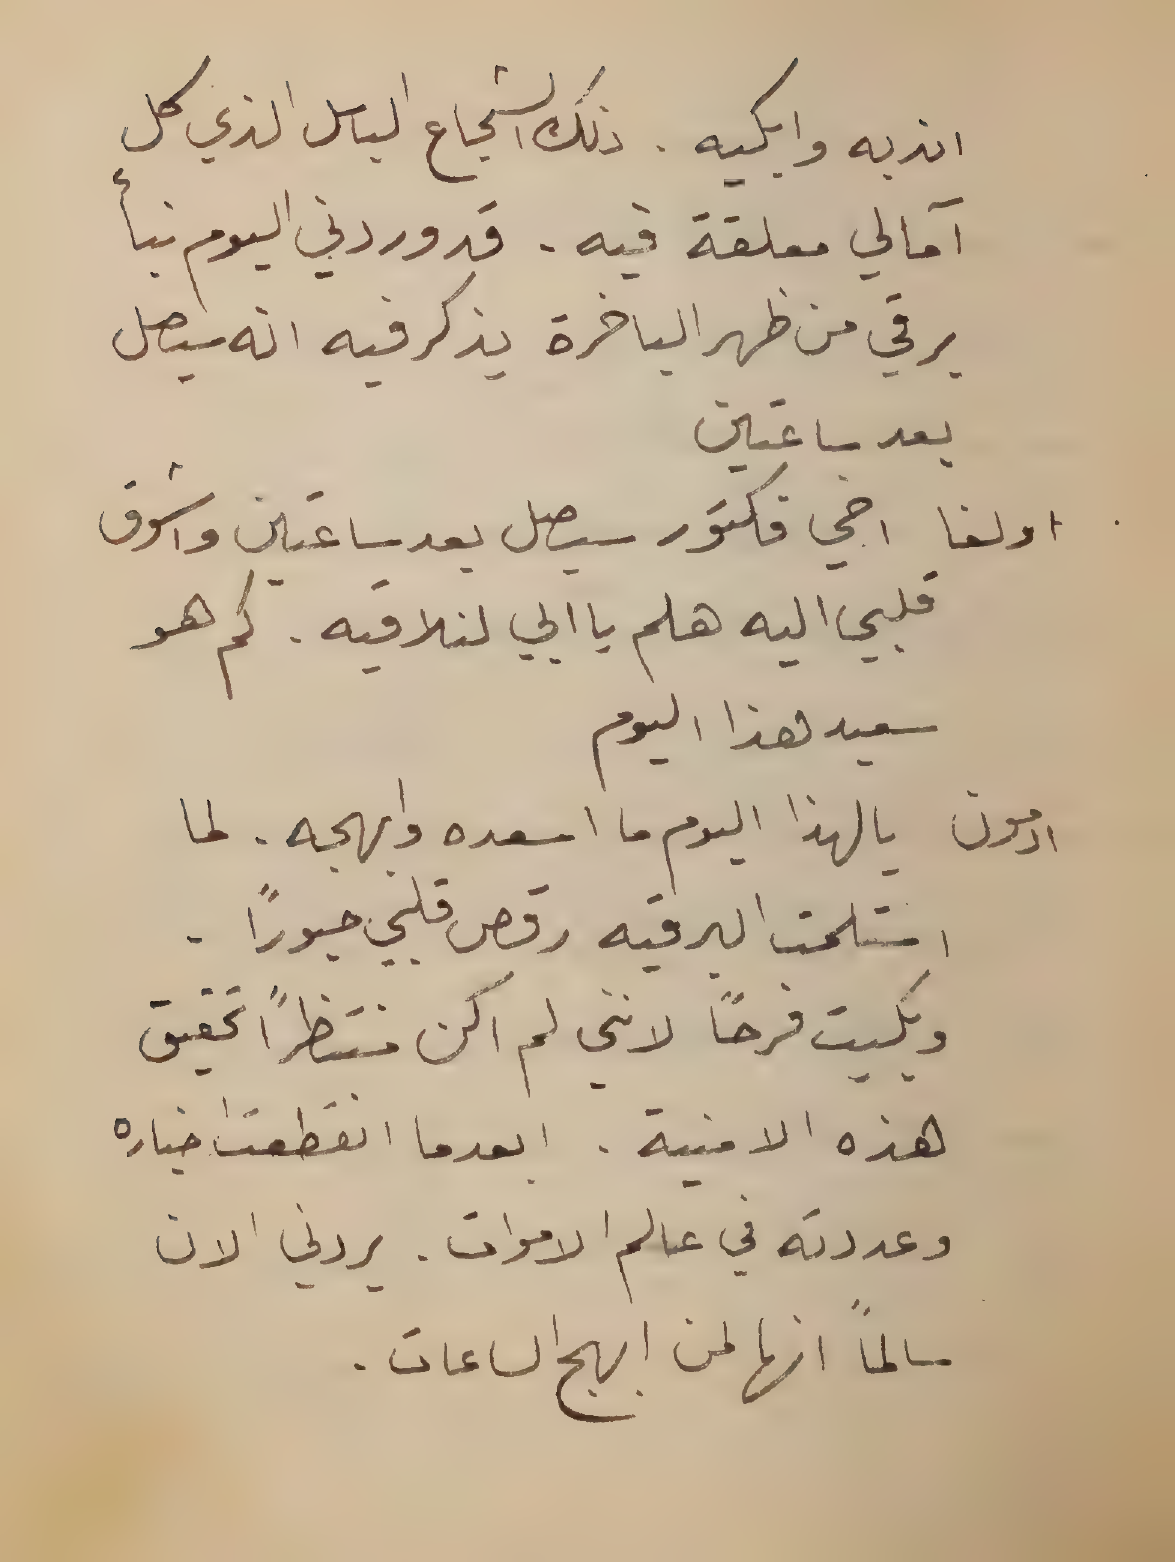 اندبه وابكيه . ذلك الشجاع الباسل الذي كل
آمالي معلقة فيه . قد وردني اليوم نبأ
برقي من ظهر الباخرة يذكر فيه انه سيصل
بعد ساعتين
اولغا اخي فكتور سيصل بعد ساعتين واشوق
قلبي اليه هلم يا ابي لنلاقيه . كم هو
سعيد هذا اليوم
ادمون يا لهذا اليوم ما اسعده وابهجه . لما
استلمت البرقيه رقص قلبي حبوراً .
وبكيت فرحاً لانني لم اكن منتظراً تحقيق
هذه الامنية . ابعدما انقطعت اخباره
وعددته في عالم الاموات . يردني الان
سالماً انها لمن ابهج الساعات .